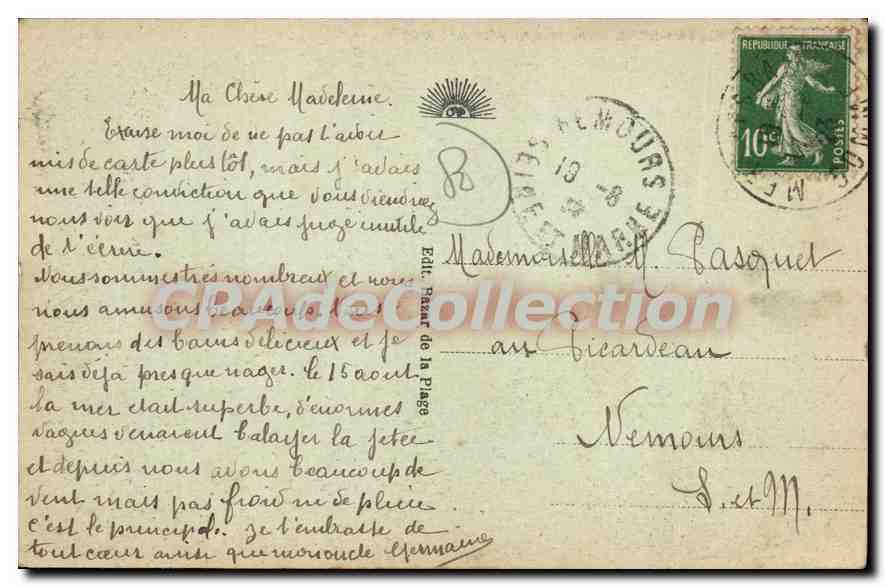 Ma Chère Madeleine.
Excuse moi de ne pas t'avoir
mis de carte plus tôt, mais j'avais
une telle conviction que vous viendrez
nous voir que j'avais jugé inutile
de t'écrire.
Nous sommes très nombreux et nous
nous amusons beaucoup. Nous
prenons des bains délicieux et je
sais déjà presque nager. le 15 aout
la mer etait superbe, d'énormes
vagues venaient balayer la jetée
et depuis nous avons beaucoup de
vent mais pas froid ni de pluie
c'est le principal. je t'embrasse de
tout cœur ainsi que mononcle Germaine
Edit. Bazar de la Plage
REPUBLIQUE FRANÇAISE
10c
POSTES
NEMOURS
19 -8
SEINE ET MARNE
Mademoiselle M. Pasquet
au Picardeau
Nemours
S. et M.
CPAdeCollection